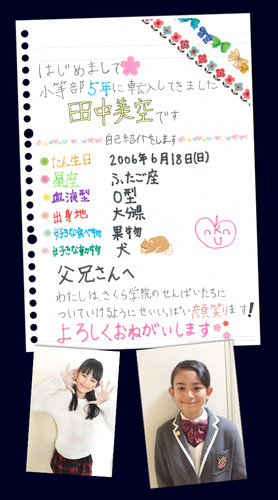 はじめまして
小等部5年に転入してきました
田中美空です
自己紹介をします
たん生日 2006年6月18日(日)
星座 ふたご座
血液型 O型
出身地 大分県
好きな食べ物 果物
好きな動物 犬
父兄さんへ
わたしは、さくら学院のせんぱいたちに
ついていけるようにせいいっぱい顔笑ります!
よろしくおねがいします